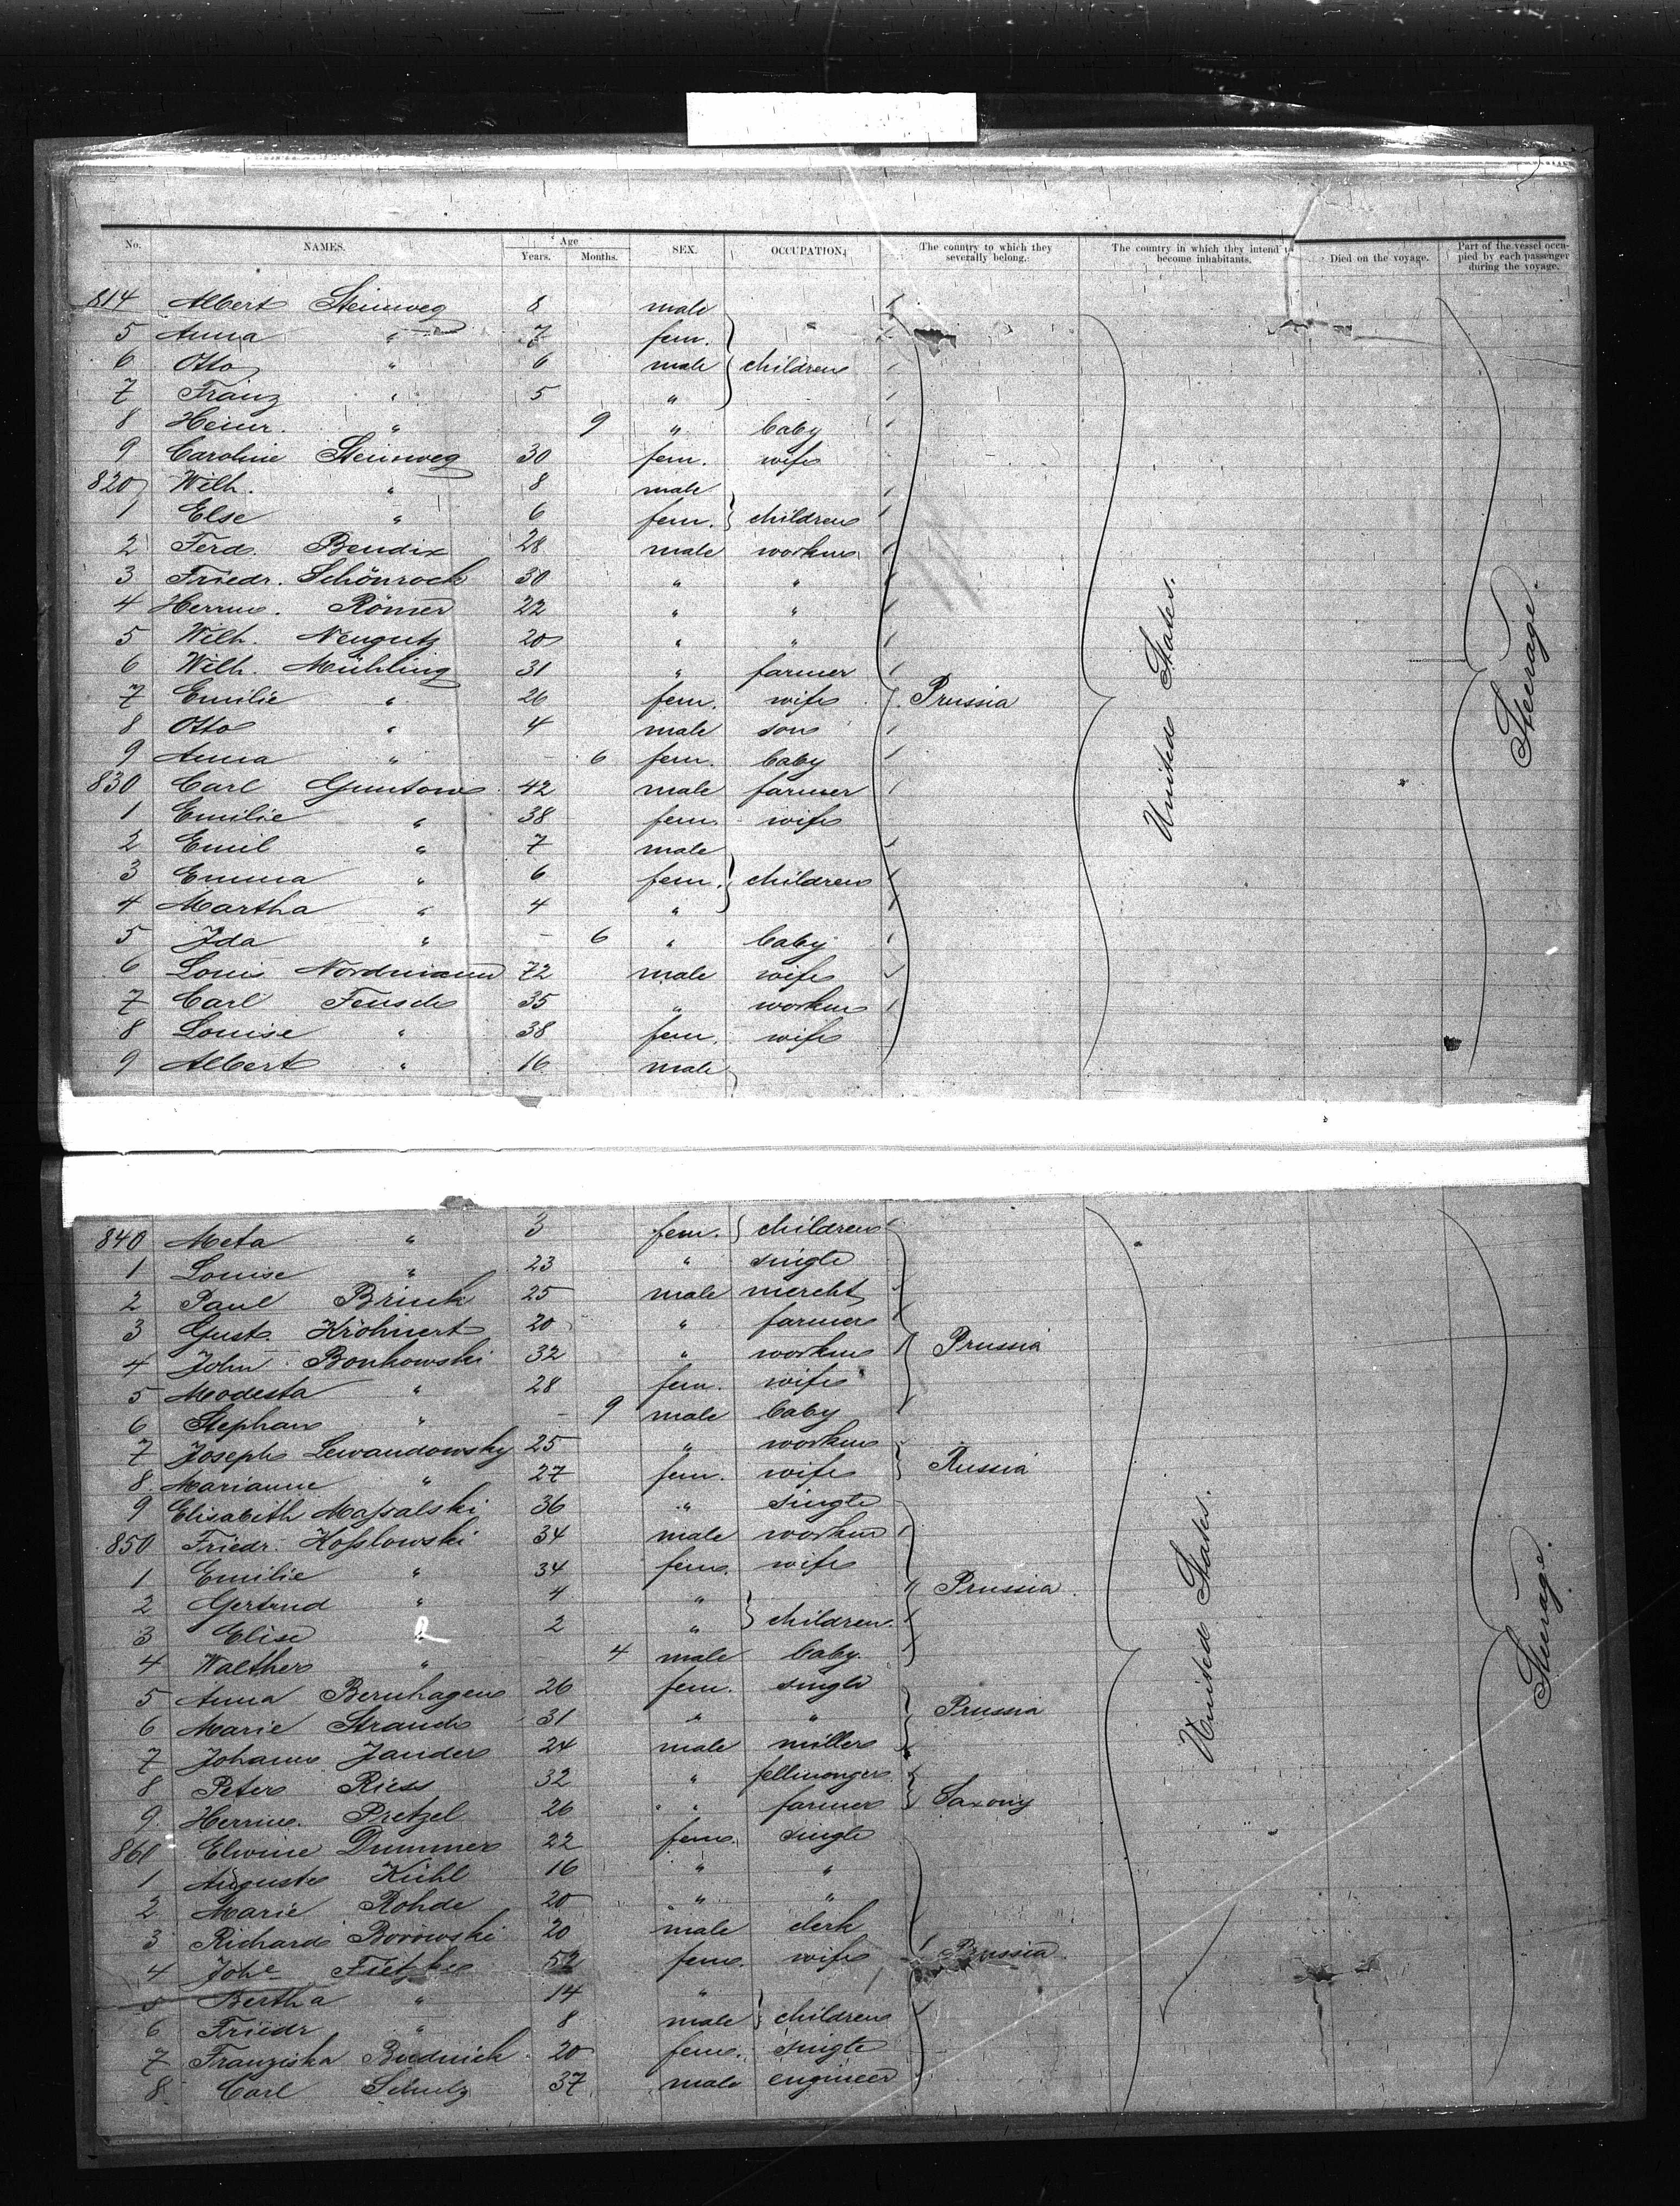 No. NAMES. Age Years. Months. SEX. OCCUPATION. The country to which they severally belong. The country in which they intend to become inhabitants. Died on the voyage. Part of the vessel occupied by each passenger during the voyage.
814 Albert Steinweg 8 male
5 Anna " 7 fem.
6 Otto " 6 male children
7 Franz " 5 "
8 Heinr. " 9 " baby
9 Caroline Steinweg 30 fem. wife
820 Wilh. " 8 male
1 Else " 6 fem. children
2 Ferd. Bendix 28 male workm
3 Friedr. Schönrock 30 " "
4 Herrm. Römer 22 " "
5 Wilh. Neugutz 20 " "
6 Wilh. Mühling 31 " farmer
7 Emilie " 26 fem. wife Prussia
8 Otto " 4 male son
9 Anna " - 6 fem. baby
830 Carl Gumtow 42 male farmer
1 Emilie " 38 fem wife
2 Emil " 7 male
3 Emma " 6 fem. children
4 Martha " 4 "
5 Ida " - 6 " baby
6 Louis Nordmann 72 male wife
7 Carl Fensch 35 " workm
8 Louise " 38 fem. wife
9 Albert " 16 male
United States.
Steerage.
840 Meta " 3 fem. children
1 Louise " 23 " single
2 Paul Brinck 25 male mercht
3 Gust. Kröhnert 20 " farmer
4 John Bonkowski 32 " workm Prussia
5 Modesta " 28 fem. wife
6 Stephan " - 9 male baby
7 Joseph Lewandowsky 25 " workm
8 Marianne " 27 fem. wife Russia
9 Elisabeth Maßalski 36 " single
850 Friedr. Koßlowski 34 male workm
1 Emilie " 34 fem. wife
2 Gertrud " 4 " Prussia
3 Elise " 2 " children
4 Walther " - 4 male baby
5 Anna Bernhagen 26 fem. single
6 Marie Strauch 31 " " Prussia
7 Johann Jander 24 male miller
8 Peter Riess 32 " fellmonger
9 Herrm. Pretzel 26 " farmer Saxony
860 Elwine Dummer 22 fem. single
1 Auguste Kühl 16 " "
2 Marie Rohde 20 " "
3 Richard Borowski 20 male clerk
4 Johe Fietzke 52 fem. wife Prussia
5 Bertha " 14 "
6 Friedr " 8 male children
7 Franziska Budnick 20 fem. single
8 Carl Schulz 37 male engineer
United States.
Steerage.